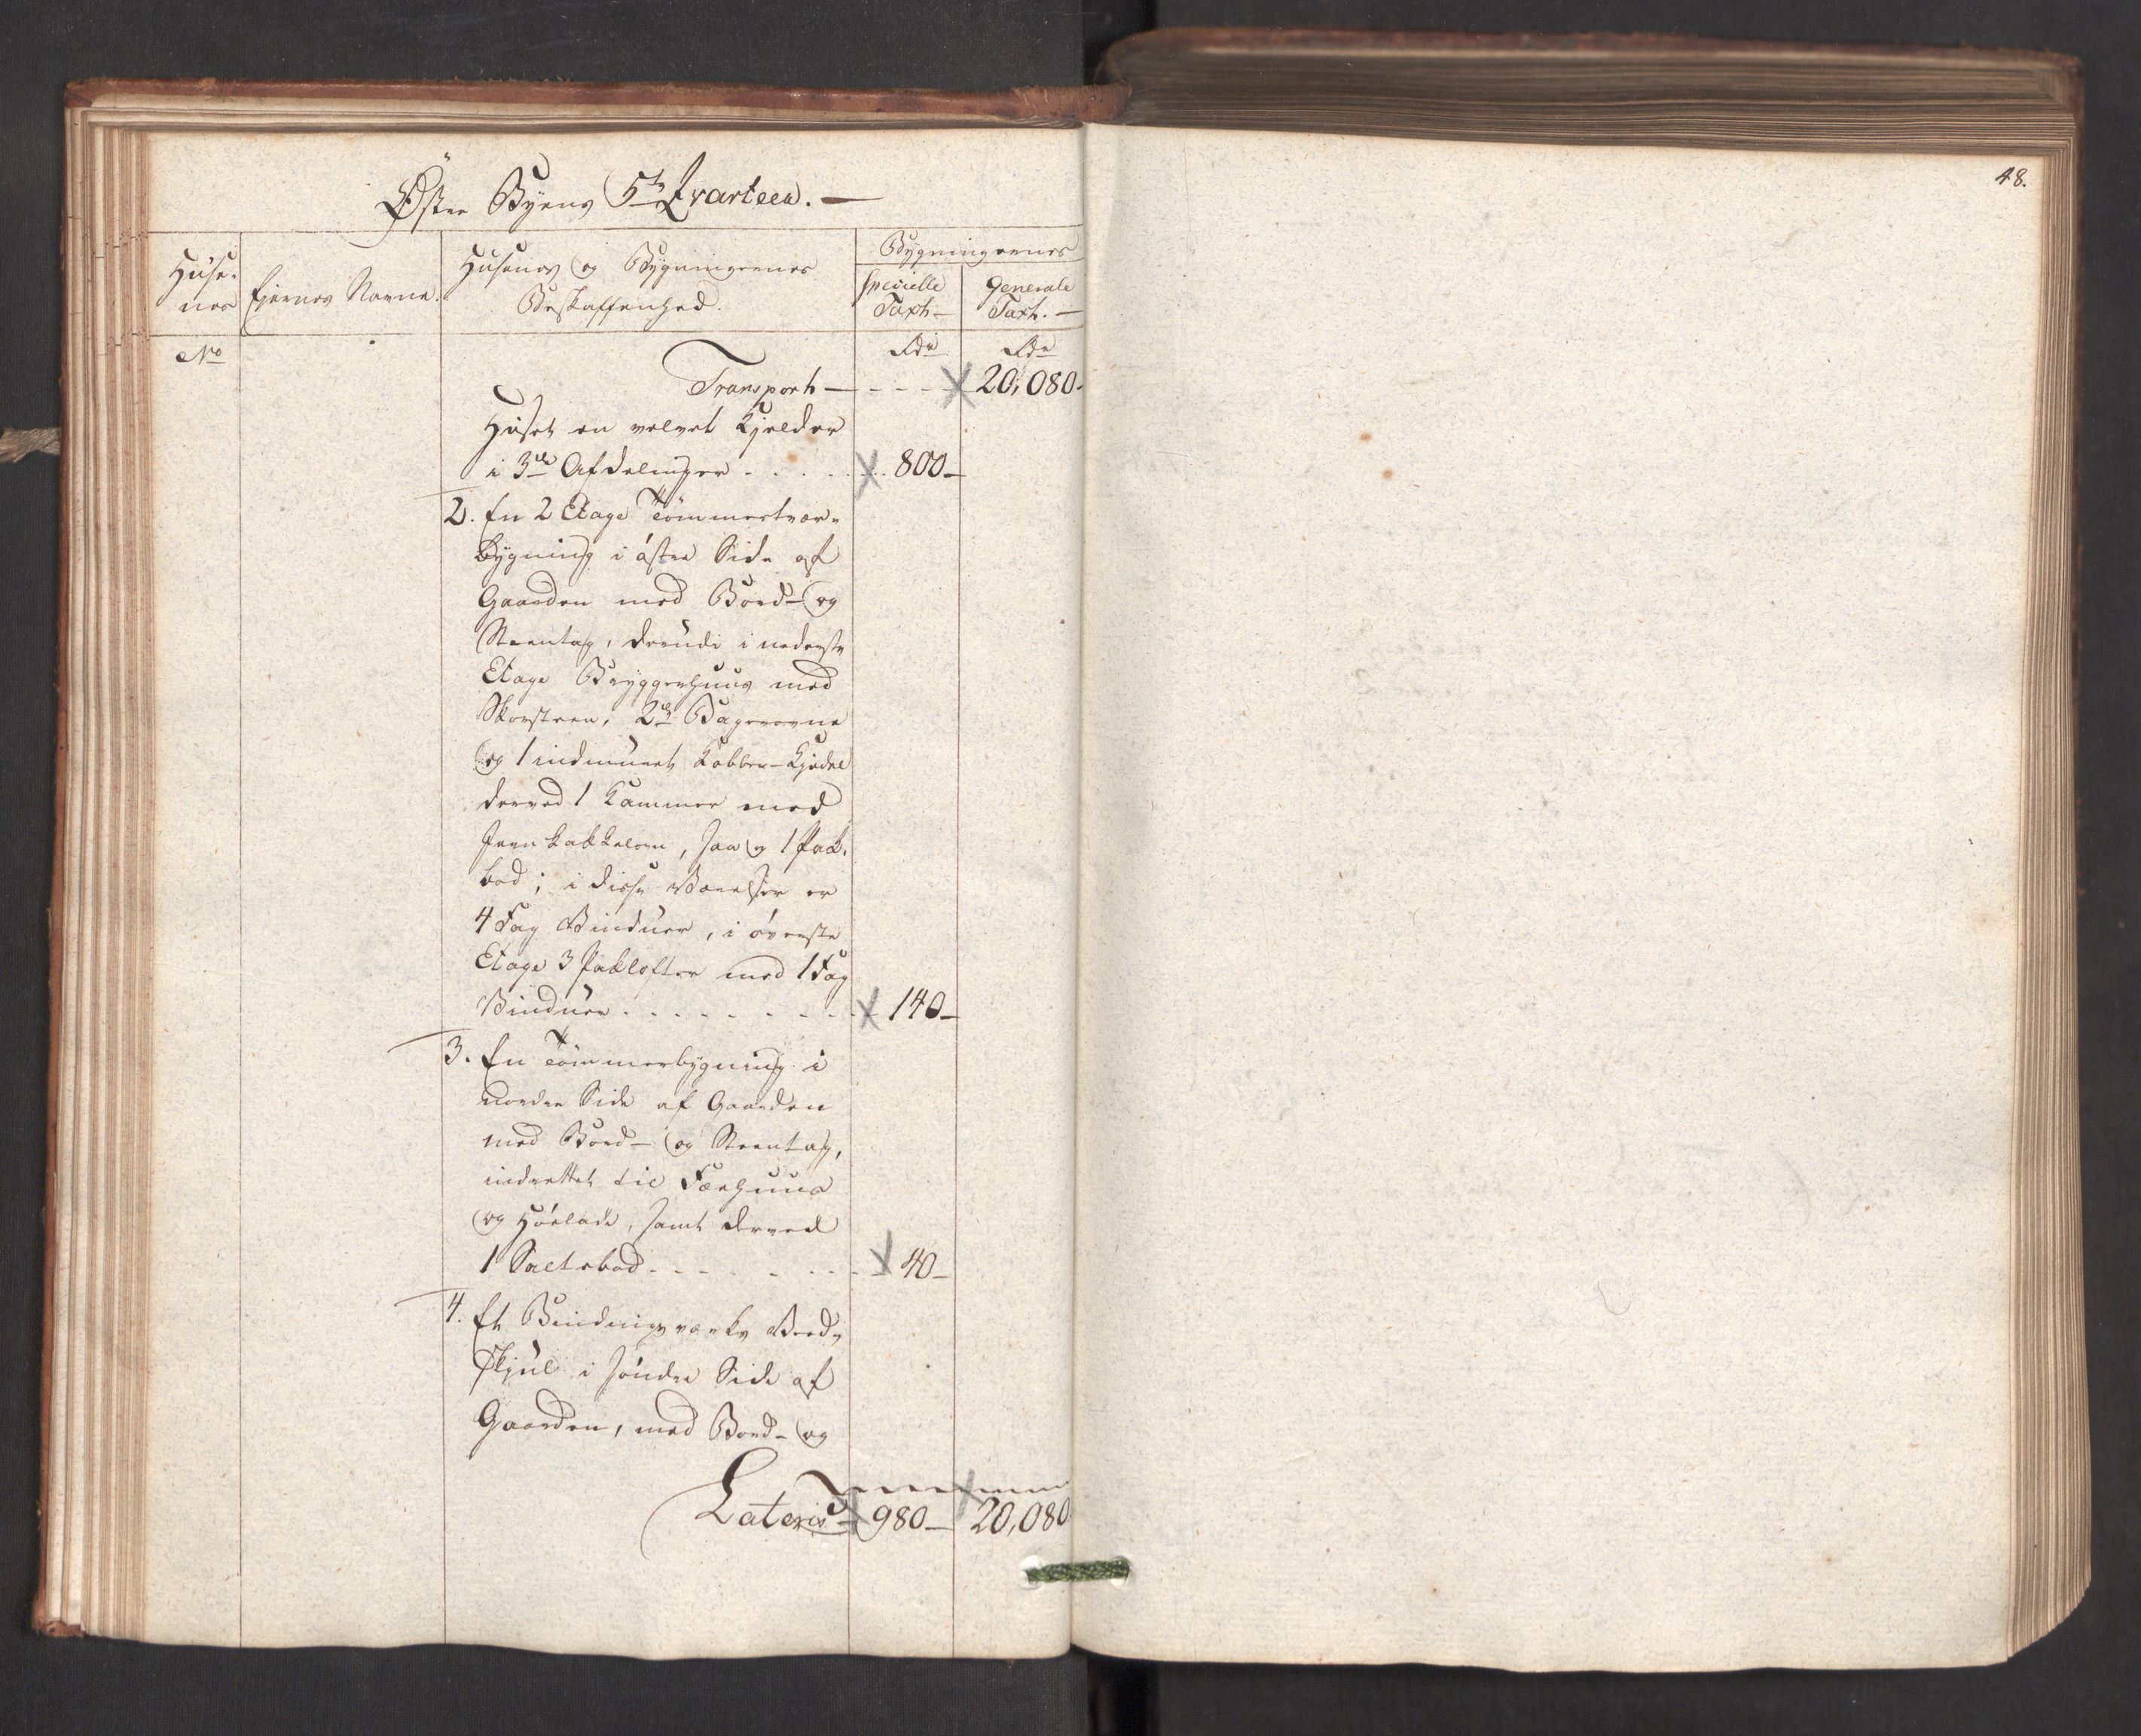 48.
Øster Byens 5te Qvarteer. —
Huse-
nes
Ejernes Navne.
Husenes og Bygningernes
Beskaffenhed.
Bygningernes
Specielle
Taxt —
Generale
Taxt. —
No
Rdr
Rdr
Transport — - - - 20,080.
Huset en velvet Kjelder
i 3de Afdelinger . . . . . . 800 —
2. En 2 Etage Tømmertvær-
bygning i øster Side af
Gaarden med Bord- og
Steentag, derudi i nederste
Etage Bryggerhuus med
Skorsteen, 2de Bagerovne
og 1 indmuret Kobber-Kjedel
derved 1 Kammer med
Jernkakkelovn, saa og 1 Pak-
bod; i disse Værelser er
4 Fag Vinduer, i øverste
Etage 3 Paklofter med 1 Fag
Vinduer . . . . . . . . . 140 —
3. En Tømmerbygning i
nordre Side af Gaarden
med Bord- og Steentag,
indrettet til Færhuus
og Høelade, samt derved
1 Saltebod . . . . . . . 40 —
4. Et Bindingsværks Ved-
skjul i søndre Side af
Gaarden, med Bord- og
Lateris — 980 — 20,080